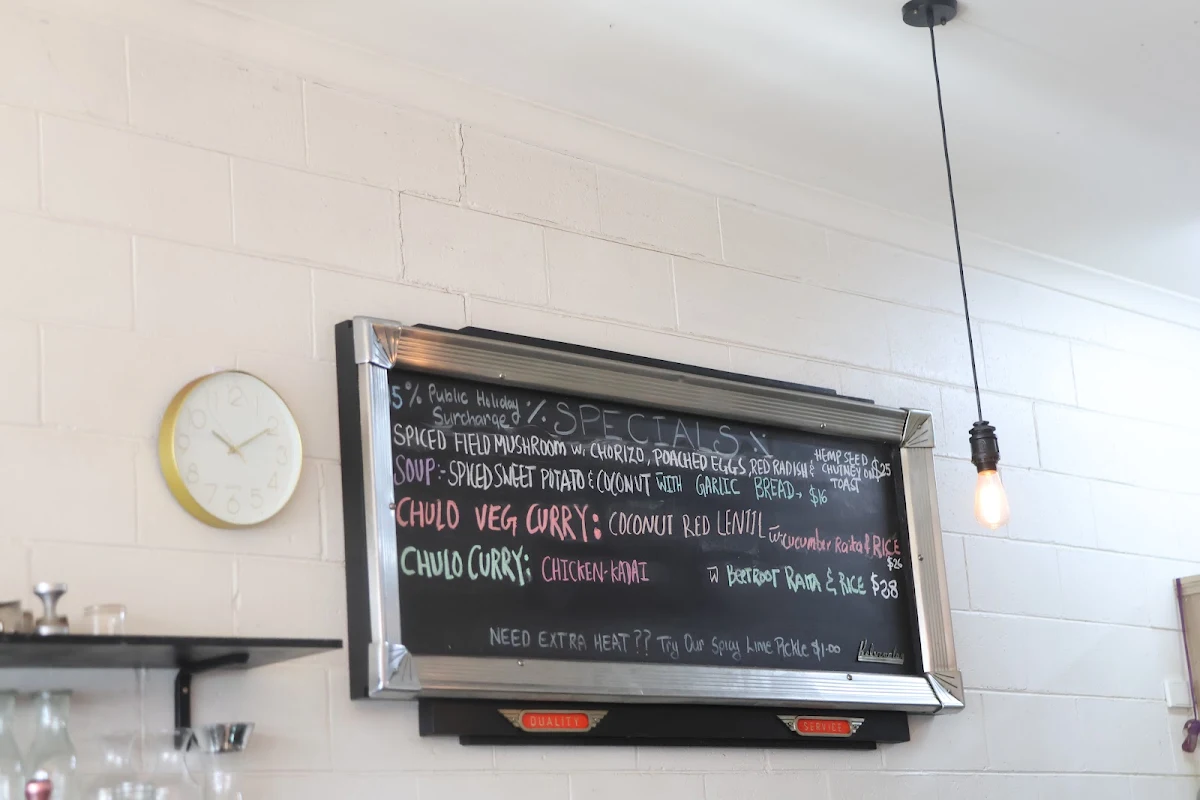 5% Public Holiday
Surcharge
% SPECIALS %
SPICED FIELD MUSHROOM w. CHORIZO, POACHED EGGS, RED RADISH &
HEMP SEED
CHUTNEY ON $25
TOAST
SOUP:- SPICED SWEET POTATO & COCONUT WITH GARLIC BREAD - $16
CHULO VEG CURRY: COCONUT RED LENTIL w-cucumber Raita & RICE
$26
CHULO CURRY: CHICKEN-KADAI w BEETROOT RAITA & RICE $28
NEED EXTRA HEAT?? Try Our Spicy Lime Pickle $1.00
QUALITY
SERVICE
12
1
2
3
4
5
6
7
8
9
10